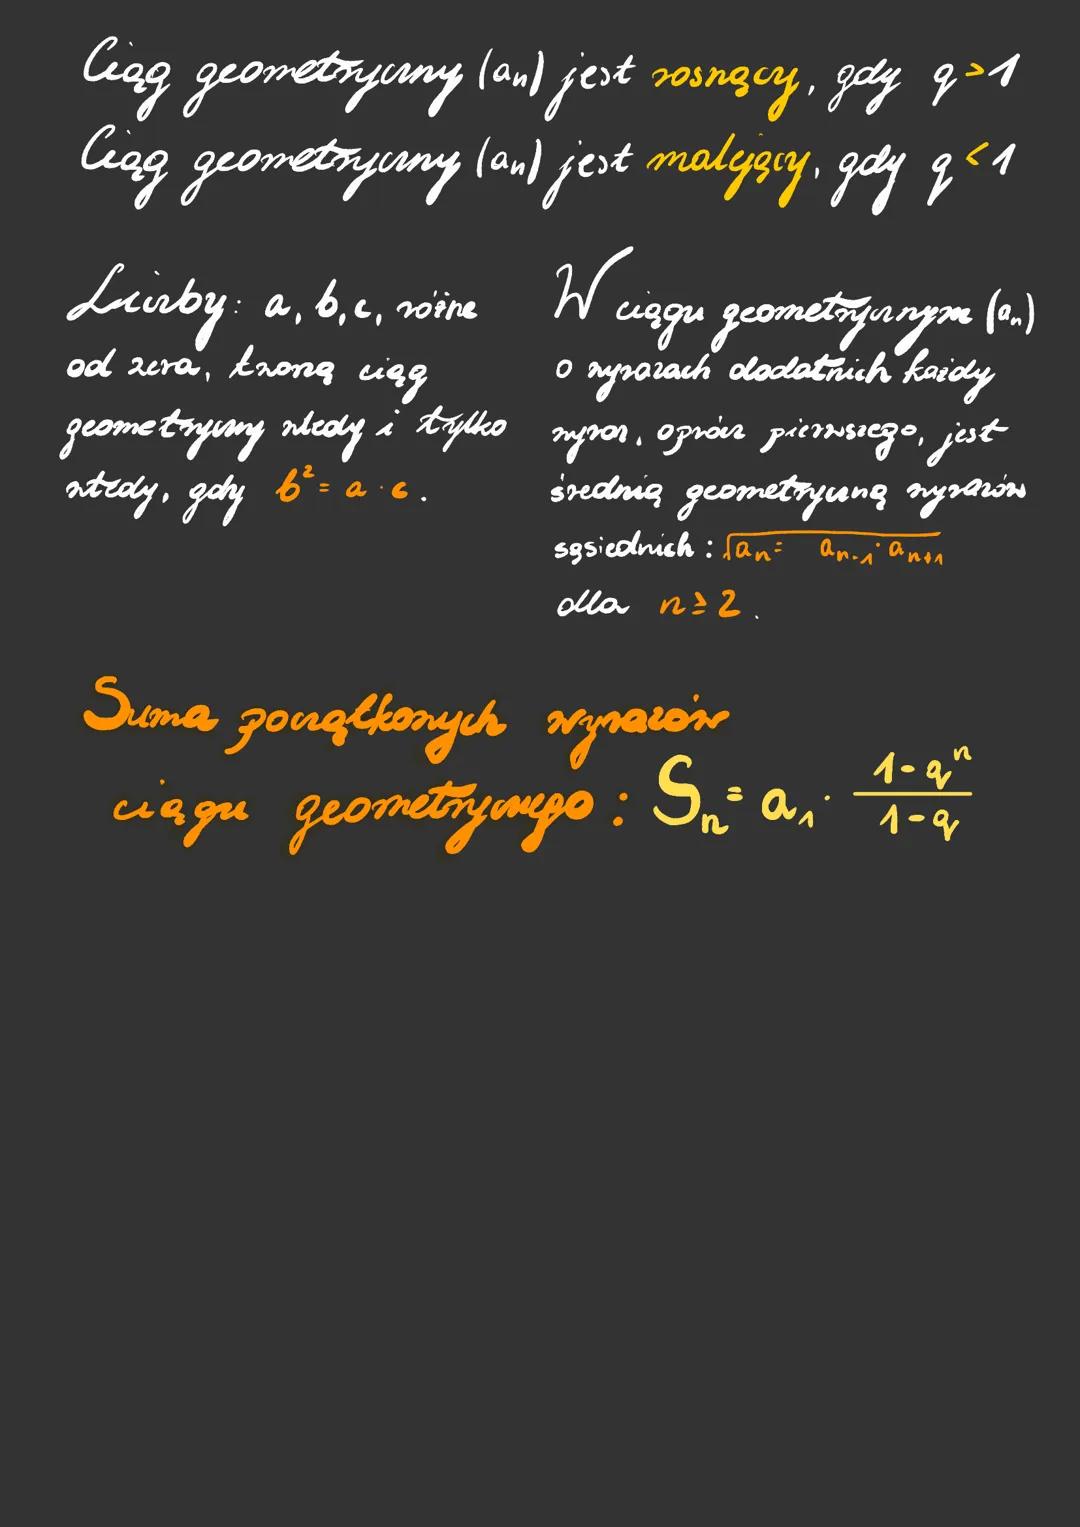 Ciąg geometryczny (aₙ) jest rosnący, gdy q > 1
Ciąg geometryczny (aₙ) jest malejący, gdy q < 1
Liczby: a, b, c, różne
od zera, tworzą ciąg
geometryczny wtedy i tylko
wtedy, gdy b² = a · c.
W ciągu geometrycznym (aₙ)
o wyrazach dodatnich każdy
wyraz, oprócz pierwszego, jest
średnią geometryczną wyrazów
sąsiednich: √(aₙ = aₙ₋₁ · aₙ₊₁)
dla n ≥ 2.
Suma początkowych wyrazów
ciągu geometrycznego: Sₙ = a₁ · (1-qⁿ)/(1-q)